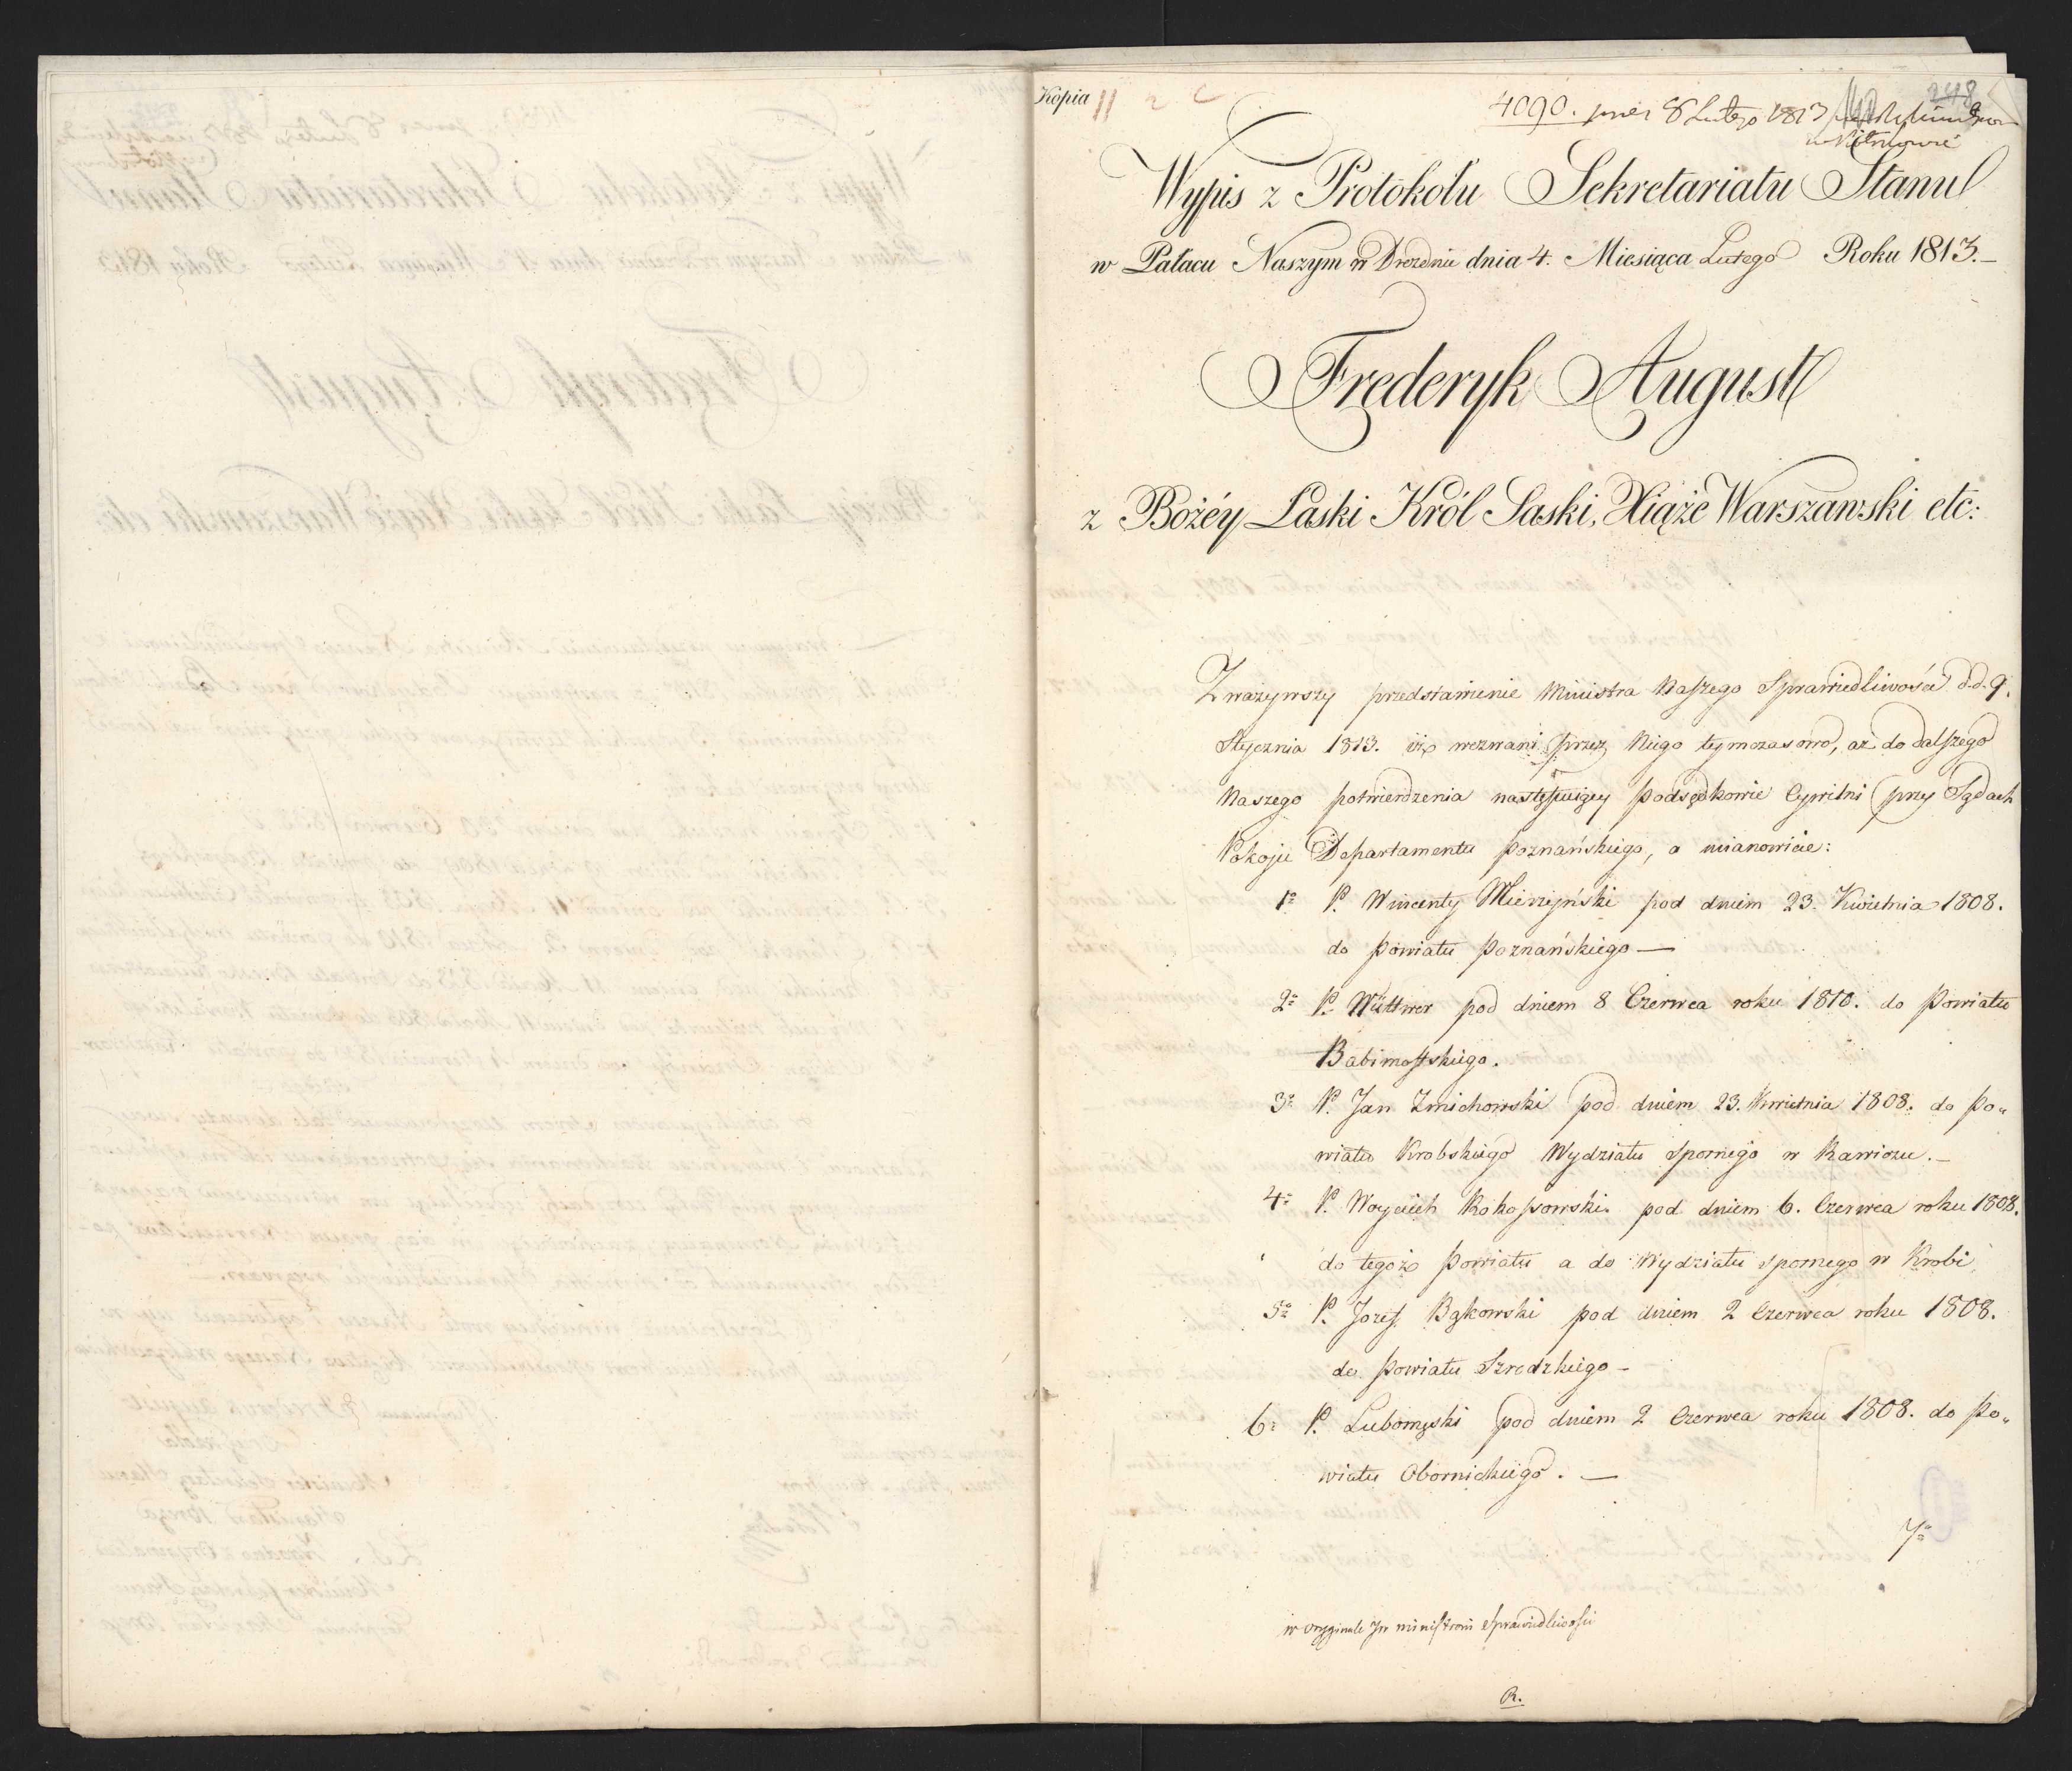 Kopia
4090. pnes 8 Lutego 1813
248
Wypis z Protokołu Sekretariatu Stanu
w Pałacu Naszym w Dreznie dnia 4. Miesiąca Lutego Roku 1813.—
Frederyk August
z Bożéy Łaski Król Saski, Xiąże Warszawski etc:
Zważywszy przedstawienie Ministra Naszego Sprawiedliwości d.d. 9.
Stycznia 1813. iż wezwani przez Niego tymczasowo, aż do dalszego
Naszego potwierdzenia następuiący Podsędkowie Cywilni przy Sądach
Pokoju Departamentu Poznańskiego, a mianowicie:
1° P. Wincenty Mierzyński pod dniem 23. Kwietnia 1808.
do Powiatu Poznańskiego —
2° P. Wüttwer pod dniem 8 Czerwca roku 1810. do Powiatu
Babimostskiego.
3° P. Jan Zmichowski pod dniem 23. Kwietnia 1808. do Po„
wiatu Krobskiego Wydziału Spornego w Rawiczu.—
4° P. Woyciech Rokossowski pod dniem 6. Czerwca roku 1808.
do tegoż Powiatu a do Wydziału spornego w Krobi
5° P. Jozef Bąkowski pod dniem 2 Czerwca roku 1808.
do Powiatu Szredzkiego —
6° P. Lubomęski pod dniem 2 Czerwca roku 1808. do Po„
wiatu Obornickiego. —
7°
w oryginale Jw ministrowi Sprawiedliwości
R.